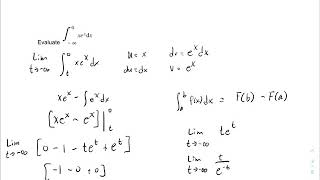 Evaluate ∫_{-∞}^{0} xe^x dx
Lim t→-∞ ∫_t^0 xe^x dx
u = x dv = e^x dx
du = dx v = e^x
xe^x - ∫e^x dx
[xe^x - e^x] |_t^0
∫_a^b f(x) dx = F(b) - F(a)
Lim t→-∞ [0 - 1 - te^t + e^t]
Lim t→-∞ te^t
Lim t→-∞ t/e^{-t}
[-1 - 0 + 0]